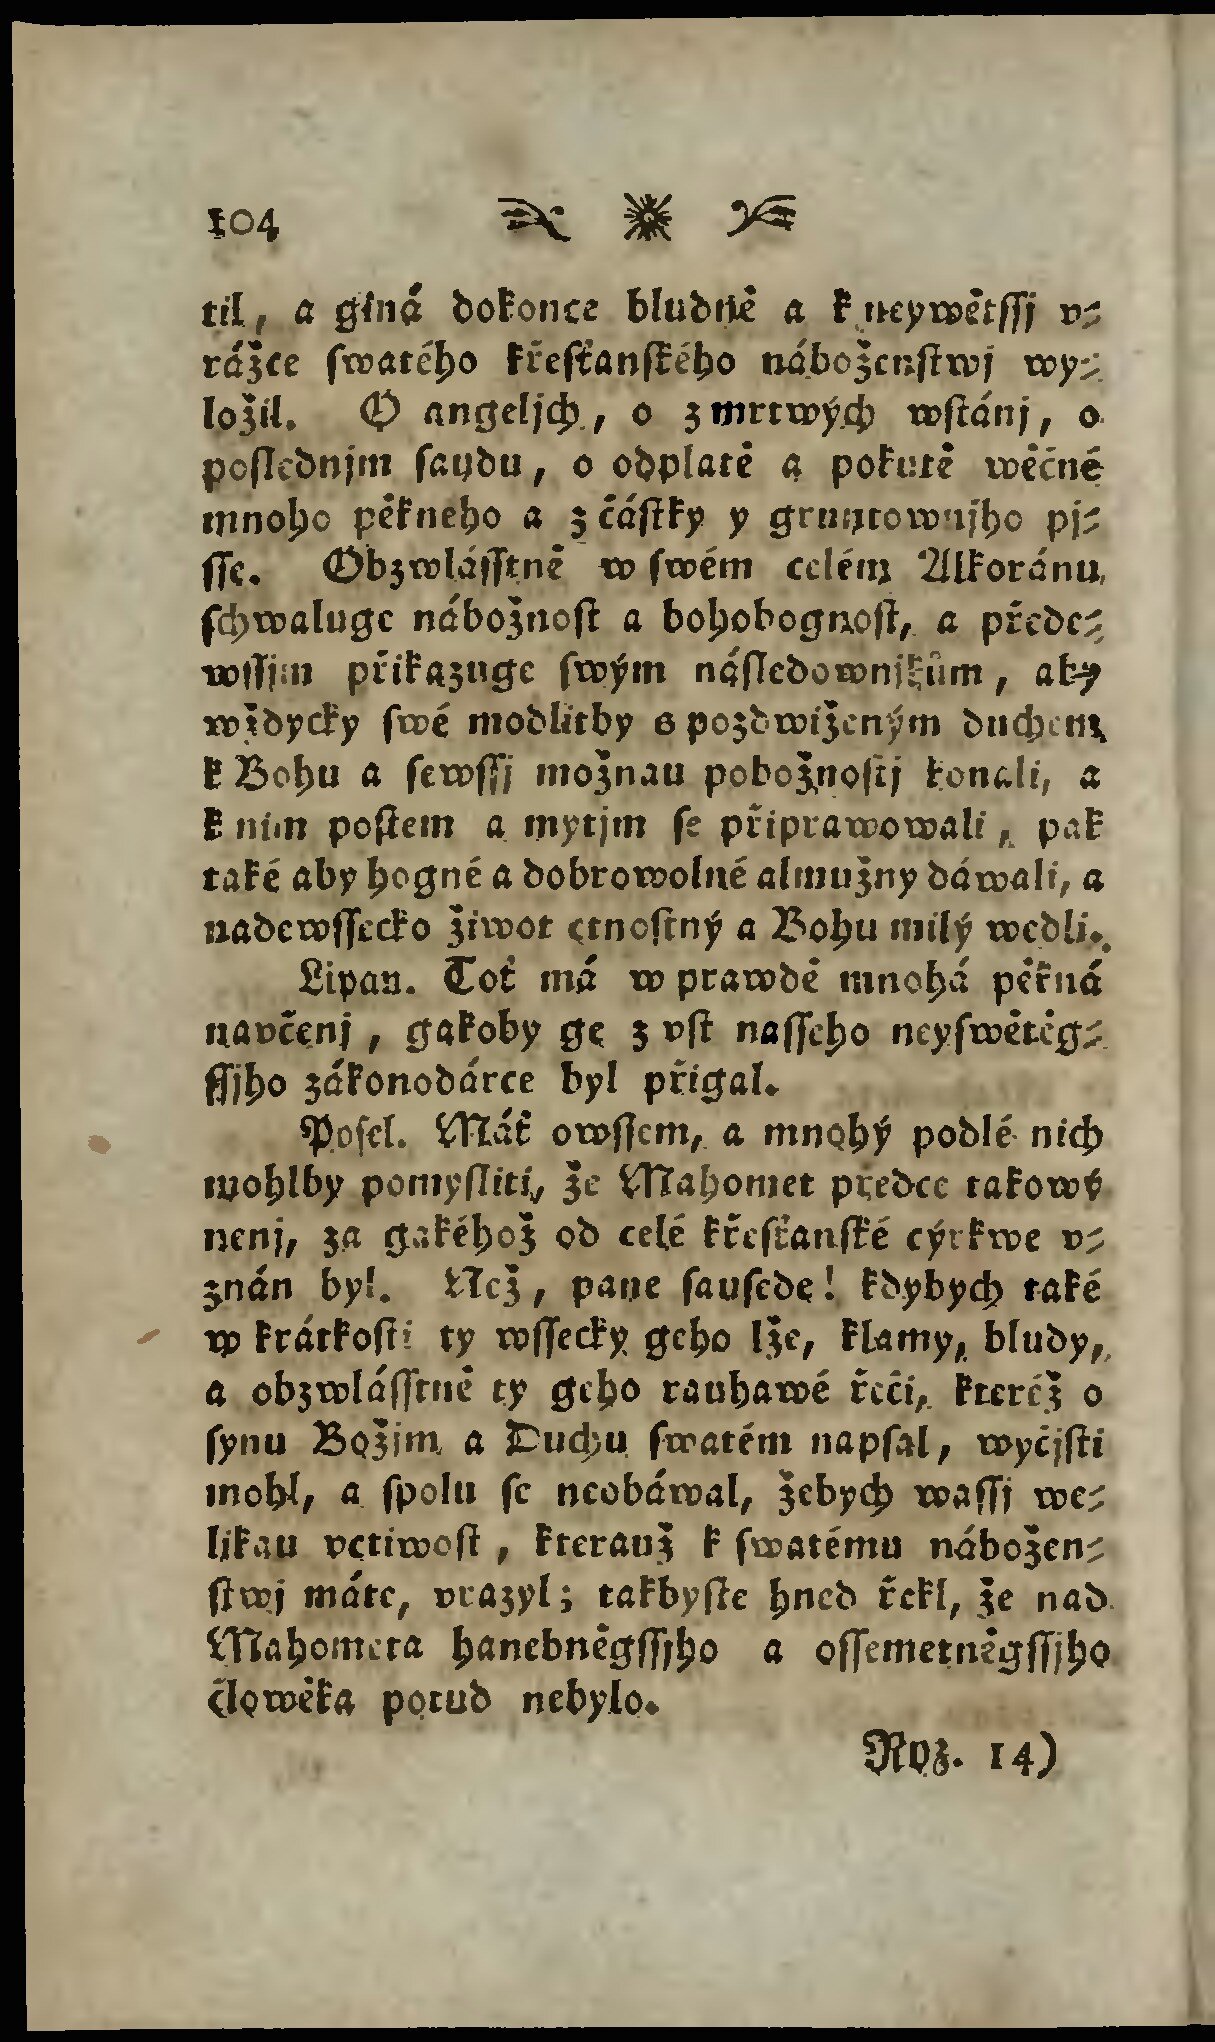 104
til, a giná dokonce bludně a k neywětſſj v⸗
rážce ſwatého křeſťanſkého náboženſtwj wy⸗
ložil. O angeljch, o z mrtwých wſtánj, o
poſlednjm ſaudu, o odplatě a pokutě wěčné
mnoho pěkneho a z částky y gruntownjho pj⸗
ſſe. Obzwláſſtně w ſwém celém Alkoránu,
ſchwaluge nábožnoſt a bohobognoſt, a přede⸗
wſſjm přikazuge ſwým náſledownjkům, aby
wždycky ſwé modlitby s pozdwiženým duchem
k Bohu a ſewſſj možnau pobožnoſtj konali, a
k nim poſtem a mytjm ſe připrawowali, pak
také aby hogné a dobrowolné almužny dáwali, a
nadewſſecko žiwot ctnoſtný a Bohu milý wedli.
Lipan. Toť má w prawdě mnohá pěkná
navčenj, gakoby ge z vſt naſſeho neyſwětěg⸗
ſſjho zákonodárce byl přigal.
Poſel. Máť owſſem, a mnohý podlé nich
mohlby pomyſliti, že Mahomet předce takowý
nenj, za gakéhož od celé křeſťanſké cýrkwe v⸗
znán byl. Než, pane ſauſede! kdybych také
w krátkoſti ty wſſecky geho lže, klamy, bludy,
a obzwláſſtně ty geho rauhawé řeči, kteréž o
ſynu Božjm a Duchu ſwatém napſal, wyčjſti
mohl, a ſpolu ſe neobáwal, žebych waſſj we⸗
ljkau vctiwoſt, kterauž k ſwatému nábožen⸗
ſtwj máte, vrazyl; takbyſte hned řekl, že nad
Mahometa hanebněgſſjho a oſſemetněgſſjho
člowěka potud nebylo.
Roz. 14)